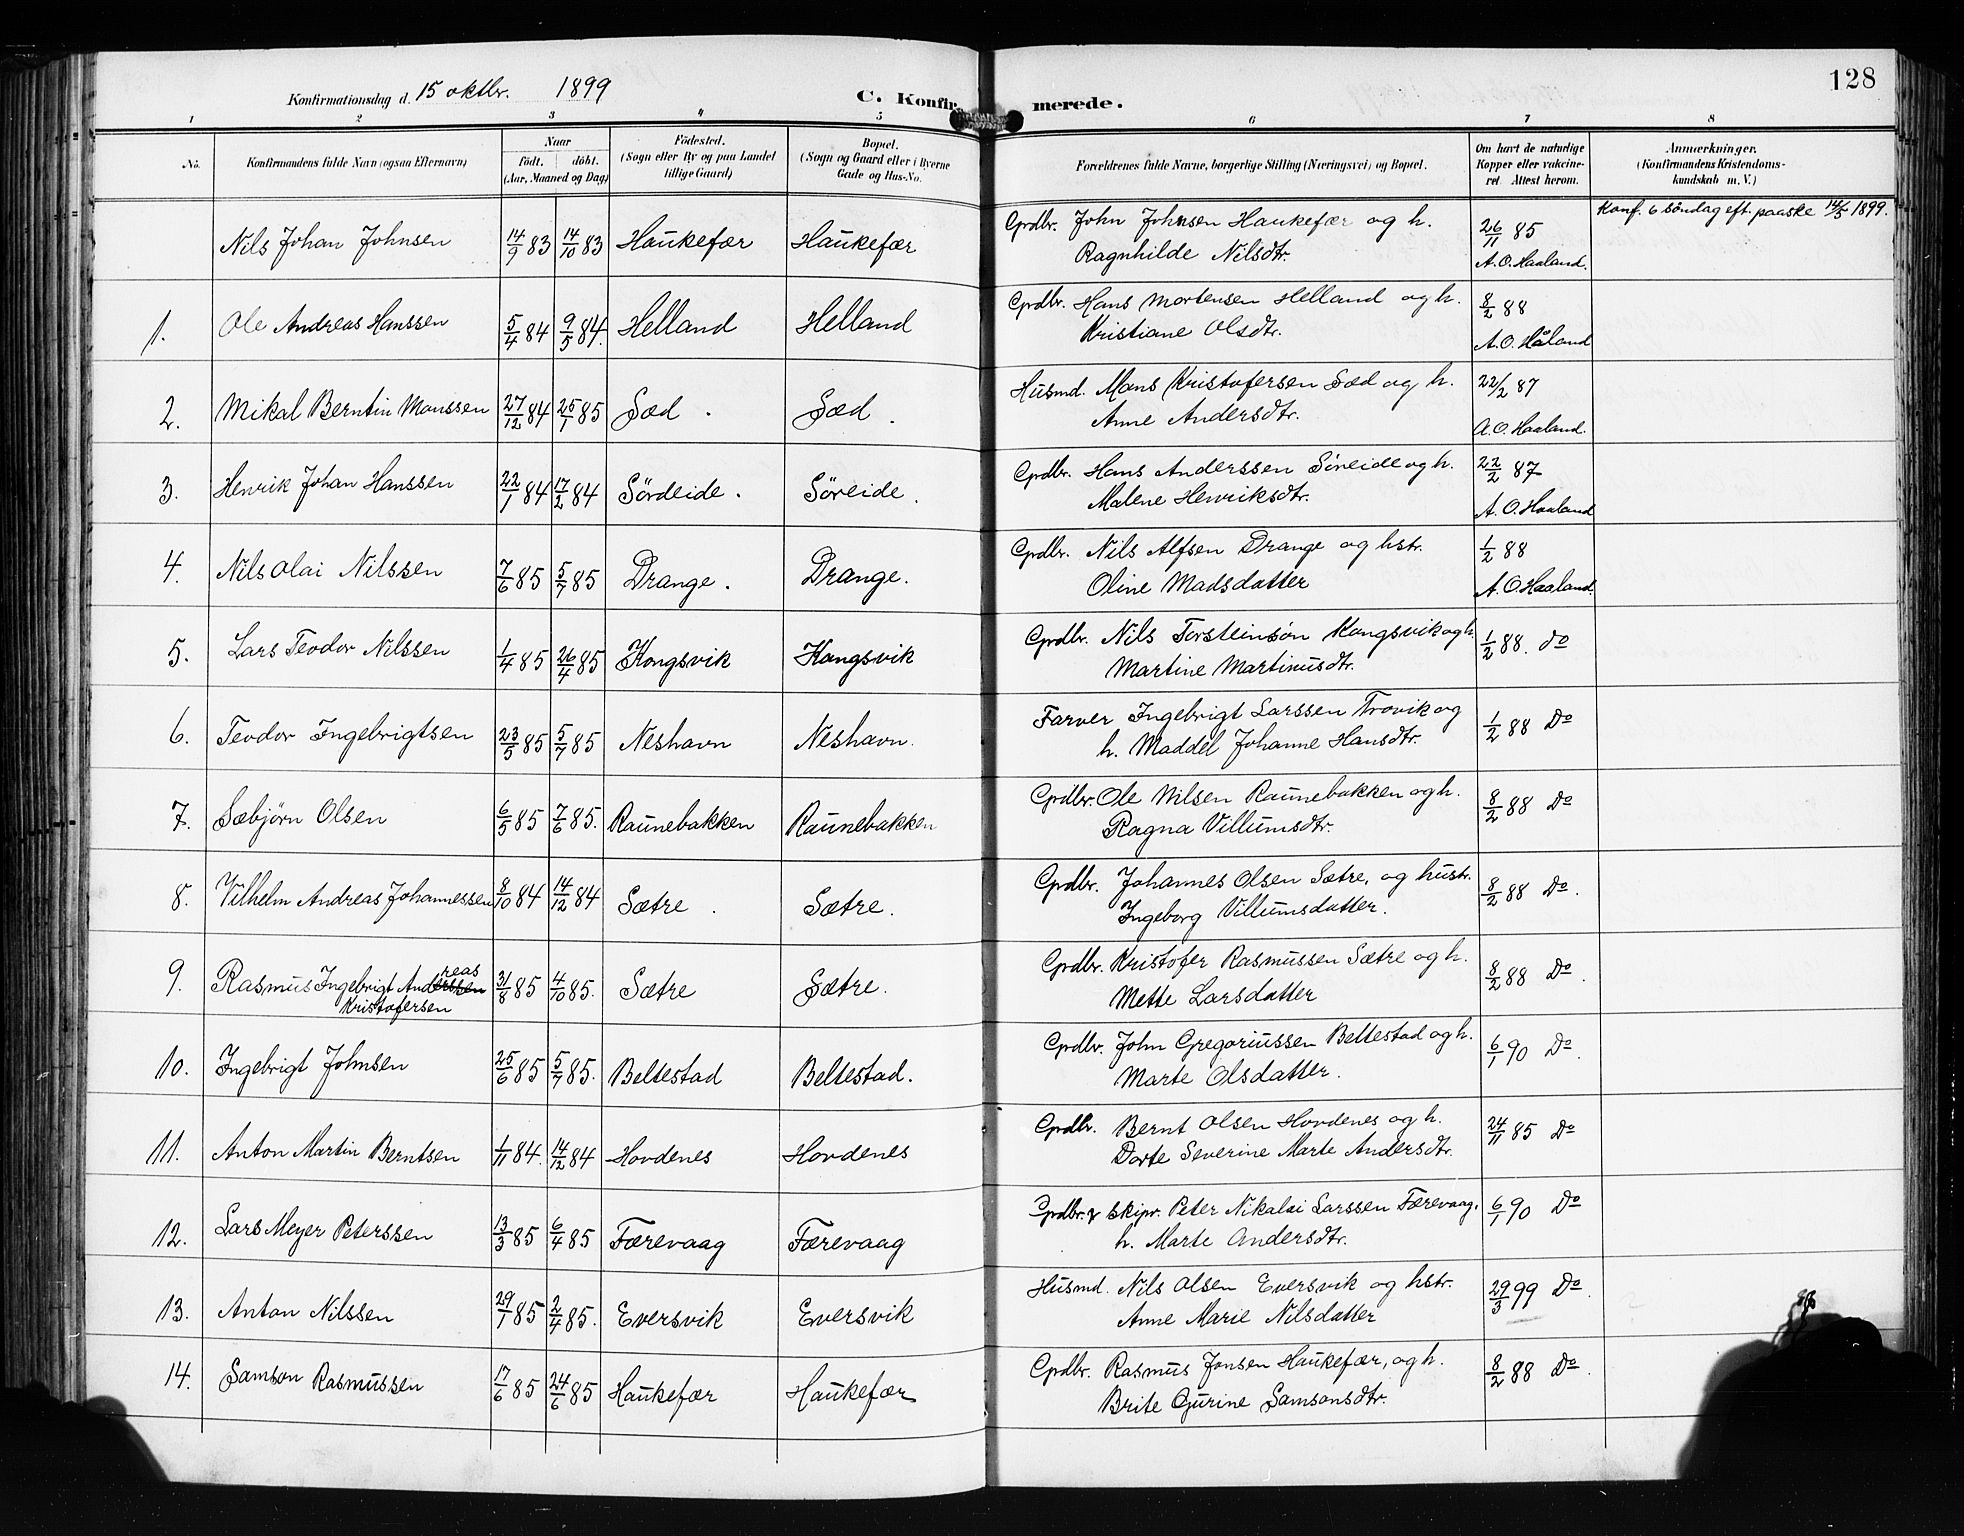 128
Konfirmationsdag d. 15 oktbr. 1899
C. Konfirmerede.
1 2 3 4 5 6 7 8
No. Konfirmandens fulde Navn (ogsaa Efternavn) Naar födt. döbt. (Aar, Maaned og Dag) Födested. (Sogn eller By og paa Landet tillige Gaard) Bopæl. (Sogn og Gaard eller i Byerne Gade og Hus-No. Forældrenes fulde Navne, borgerlige Stilling (Næringsvei) og Bopæl. Om havt de naturlige Kopper eller vakcineret. Attest herom. Anmærkninger. (Konfirmandens Kristendomskundskab m. V.)
Nils Johan Johnsen 14/9 83 14/10 83 Haukefær Haukefær Gprdbr. John Johnsen Haukefær og h. 26/11 85 Konf. 6 söndag eft. paaske 14/5 1899.
Ragnhilde Nilsdtr. A. O. Haaland.
1. Ole Andreas Hanssen 5/4 84 9/5 84. Helland Helland Gprdbr. Hans Mortensen Helland og h. 8/2 88
Kristiane Olsdtr. A. O. Håland
2. Mikal Berntin Monssen 27/12 84 25/1 85 Sæd . Sæd . Husmd. Mons Kristofersen Sæd og h. 22/2 87
Anne Andersdtr. A. O. Haaland.
3. Henrik Johan Hanssen 22/1 84 17/2 84 Sördeide . Söreide . Gprdbr. Hans Anderssen Söreide og h. 22/2 87
Malene Henriksdtr. A. O. Haaland
4. Nils Olai Nilssen 7/6 85 5/7 85 Drange . Drange. Gprdbr. Nils Alfsen Drange og hstr. 1/2 88
Oline Madsdatter A. O. Haaland.
5. Lars Teodor Nilssen 1/4 85 26/4 85 Kongsvik Kongsvik Gprdbr. Nils Torsteinsön Kongsvik og h. 1/2 88. do
Martine Martinusdtr.
6. Teodor Ingebrigtsen 23/5 85 5/7 85 Neshavn Neshavn. Farver Ingebrigt Larssen Trovik og 1/2 88 Do
h. Maddel Johanne Hansdtr.
7. Sæbjörn Olsen 6/5 85 7/6 85. Raunebakken Raunebakken Gprdbr. Ole Nilsen Raunebakken og h. 8/2 88 Do
Ragna Villumsdtr.
8. Vilhelm Andreas Johannessen 8/10 84 14/12 84 Sætre . Sætre. Gprdbr. Johannes Olsen Sætre, og hustr. 8/2 88 Do.
Ingeborg Villumsdatter.
9. Rasmus Ingebrigt Anderssen reas 31/8 85 4/10 85. Sætre Sætre. Gprdbr. Kristofer Rasmussen Sætre og h. 8/2 88 Do.
Kristofersen Mette Larsdatter
10. Ingebrigt Johnsen 25/6 85 5/7 85. Beltestad Beltestad. Gprdbr. John Gregoriussen Beltestad og h. 6/1 90 Do.
Marte Olsdatter.
11. Anton Martin Berntsen 1/11 84. 14/12 84 Hovdenes Hovdenes Gprdbr. Bernt Olsen Hovdenes og h. 24/11 85 Do
Dorte Severine Marte Andersdtr.
12. Lars Meyer Peterssen 13/3 85 6/4 85 Færevaag Færevaag Gprdbr. & Skipr. Peter Nikolai Larssen Færevaag, 6/1 90 Do
h. Marte Andersdtr.
13. Anton Nilssen 29/1 85 2/4 85. Eversvik Eversvik Husmd. Nils Olsen Eversvik og hstr. 29/3 99 Do.
Anne Marie Nilsdatter
14. Samson Rasmussen 17/6 85 24/6 85 Haukefær Haukefær Gprdbr. Rasmus Jonsen Haukefær, og h. 8/2 88 Do.
Brite Gurine Samsonsdtr.